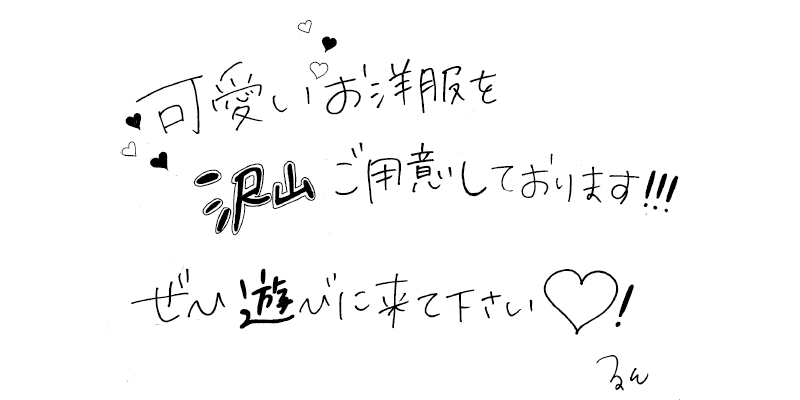 可愛いお洋服を
沢山ご用意しております!!!
ぜひ遊びに来て下さい♡!
るん